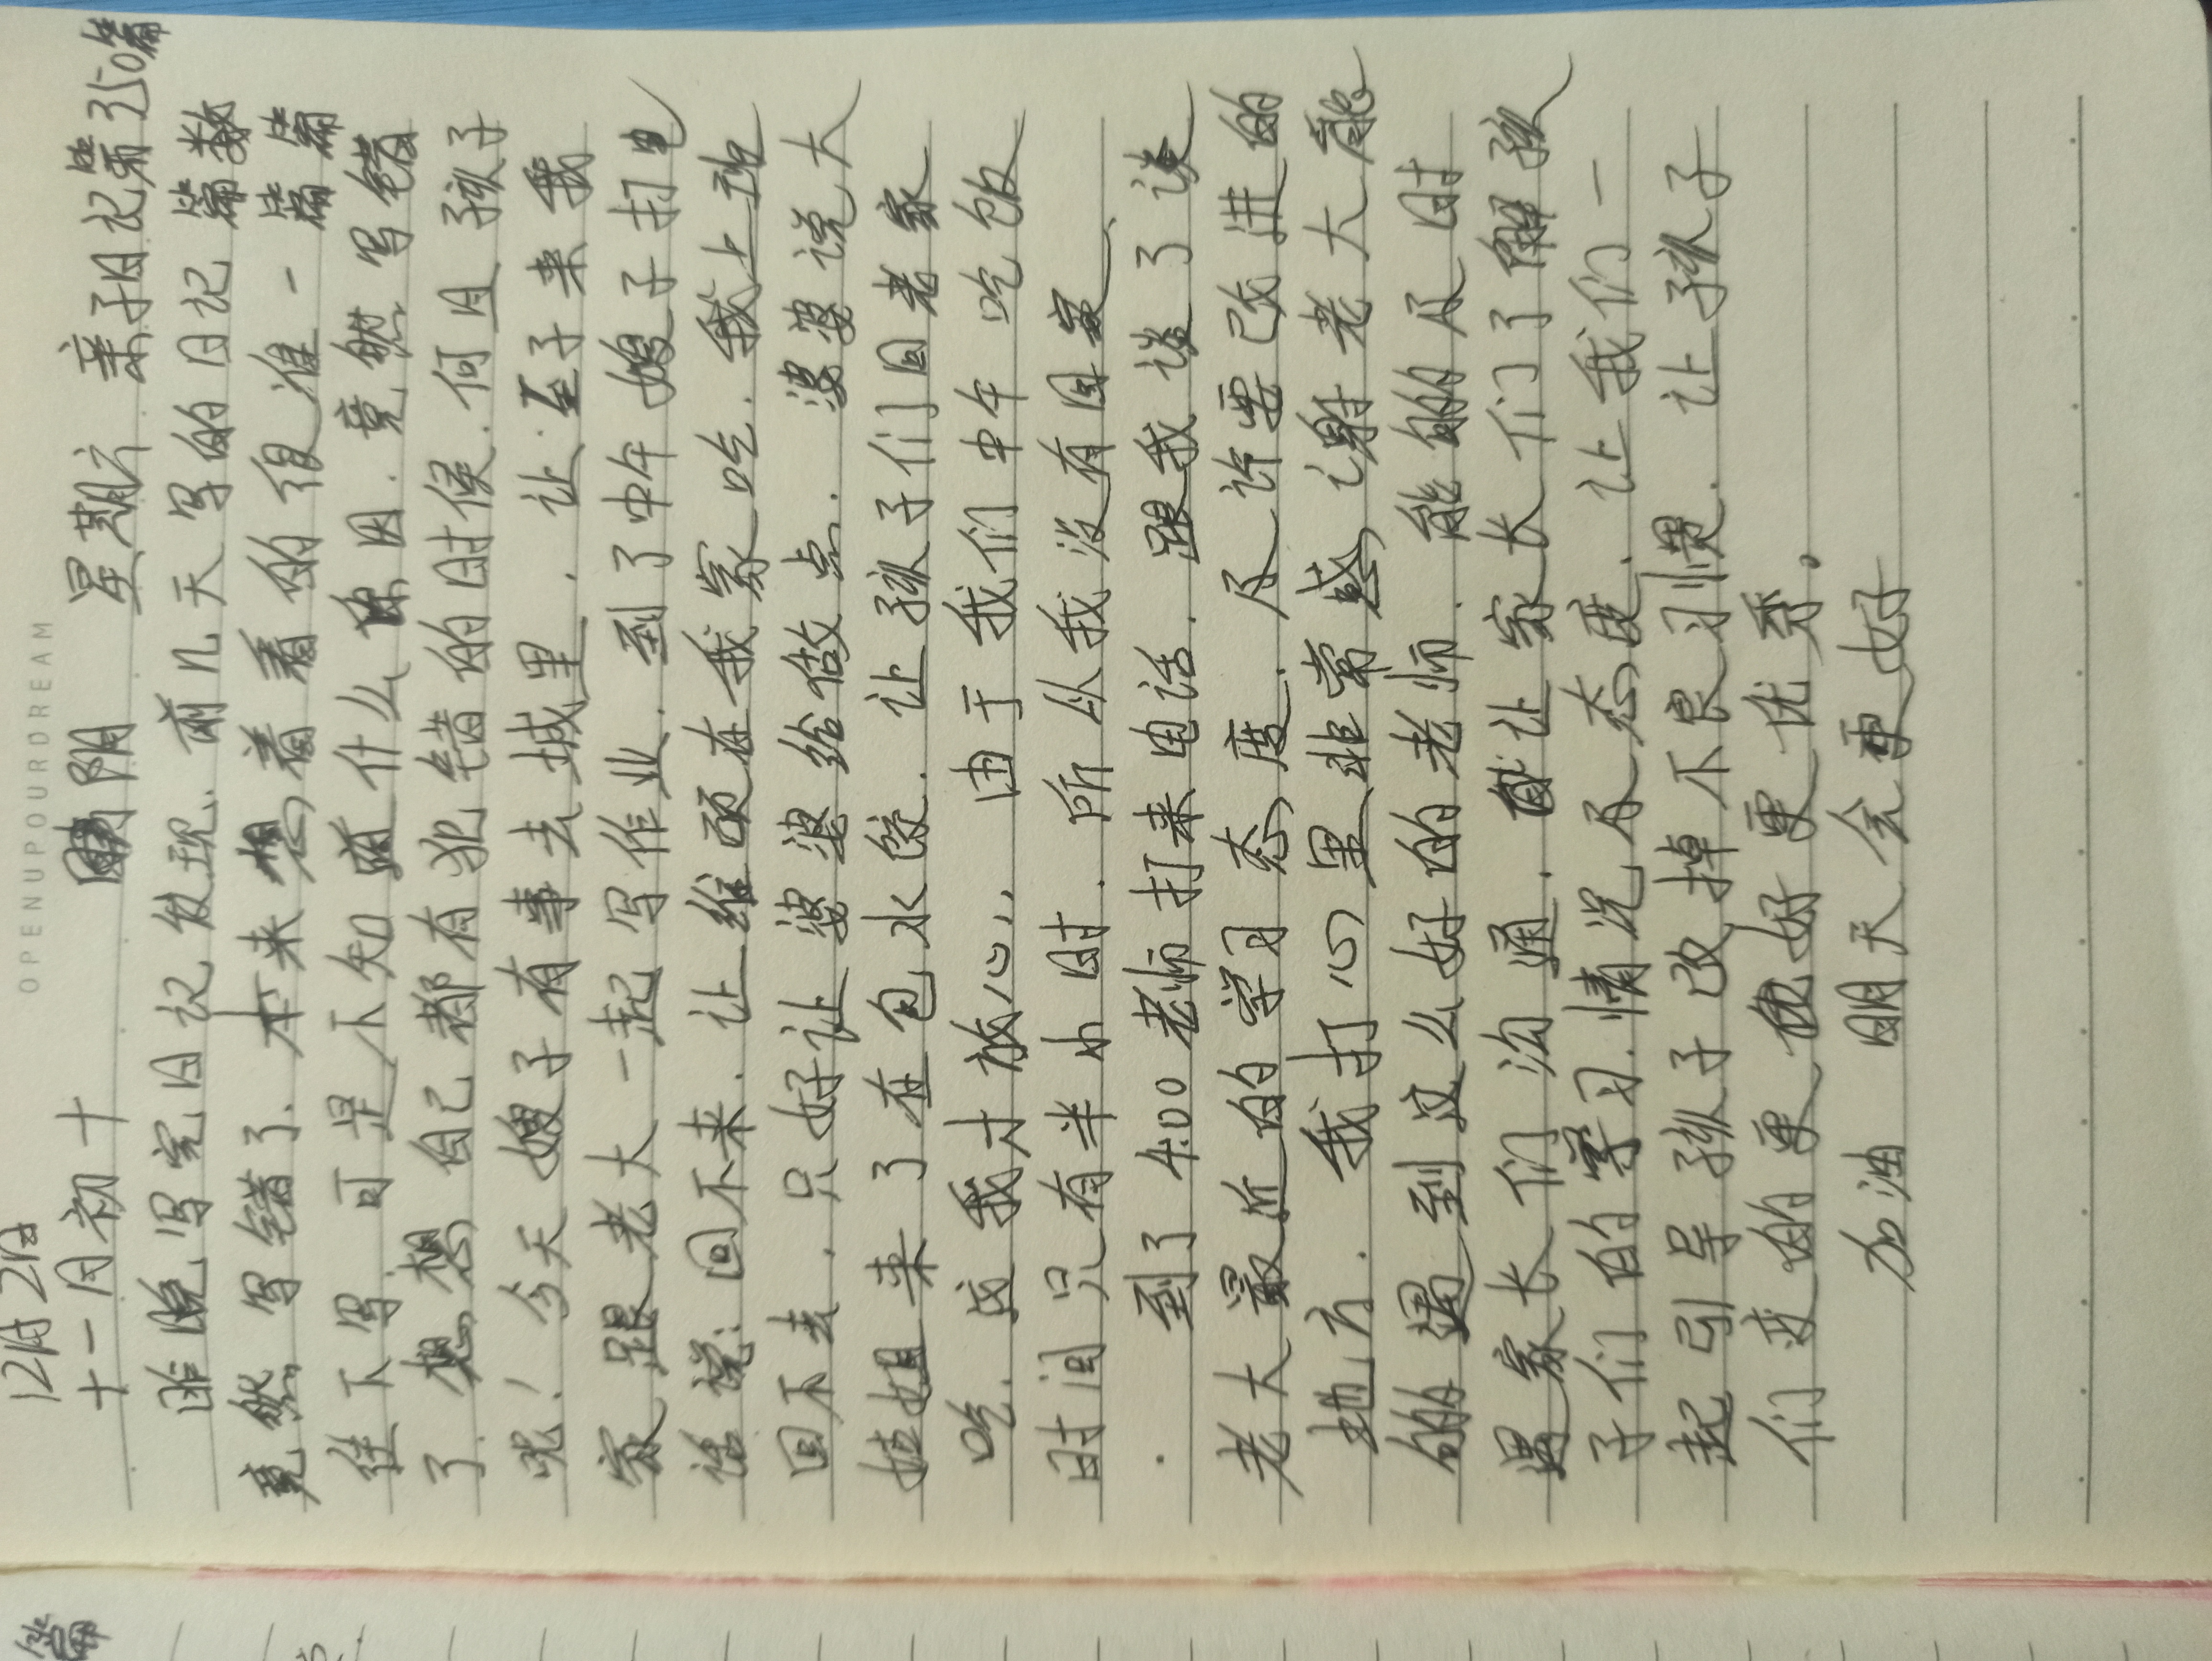 OPENUPYOURDREAM
12月2日
十一月初十 阴 星期六 亲子日记第350篇
昨晚写完日记发现.前几天写的日记篇数
竟然写错了.本来想着看的很准一篇一篇
往下写.可是不知道什么原因.竟然写错
了.想想自己都有犯错的时候.何且孩子
呢!今天嫂子有事去城里.让至子来我
家跟老大一起写作业.到了中午嫂子打电
话说:回不来.让维硕在我家吃.我上班
回不去.只好让婆婆给做点.婆婆说大
姑姐来了在包水饺.让孩子们回老家
吃.这我才放心.由于我们中午吃饭
时间只有半小时.所以我没有回家、
.到了4:00老师打来电话.跟我谈了谈
老大最近的学习态度.及许要改进的
地方.我打心里非常感谢老大能
够遇到这么好的老师.能够及时
跟家长们沟通.让家长们了解孩
子们的学习.情况及态度.让我们一
起引导孩子改掉不良习惯.让孩子
们变的更好更优秀。
加油 明天会更好
篇